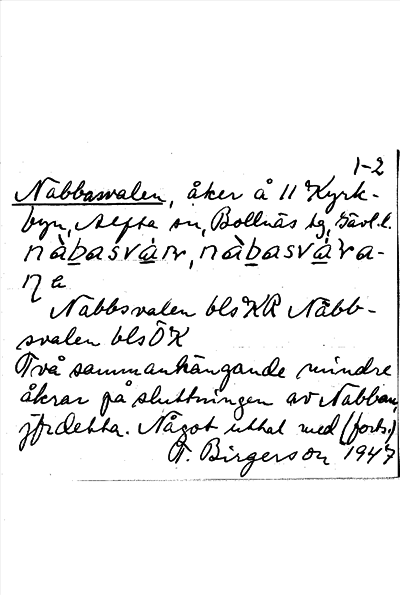 1-2
Nabbasvalen, åker å 11 Kyrk-
byn, Alfta sn, Bollnäs tg, Gävl.l.
nàbasvàḷn, nàbasváḷa-
ṇa
Nabbsvalen bls KR Näbb-
svalen bls ÖK
Två sammanhängande mindre
åkrar på sluttningen av Nabban,
jfr detta. Något uttal med (forts.)
T. Birgerson 1947